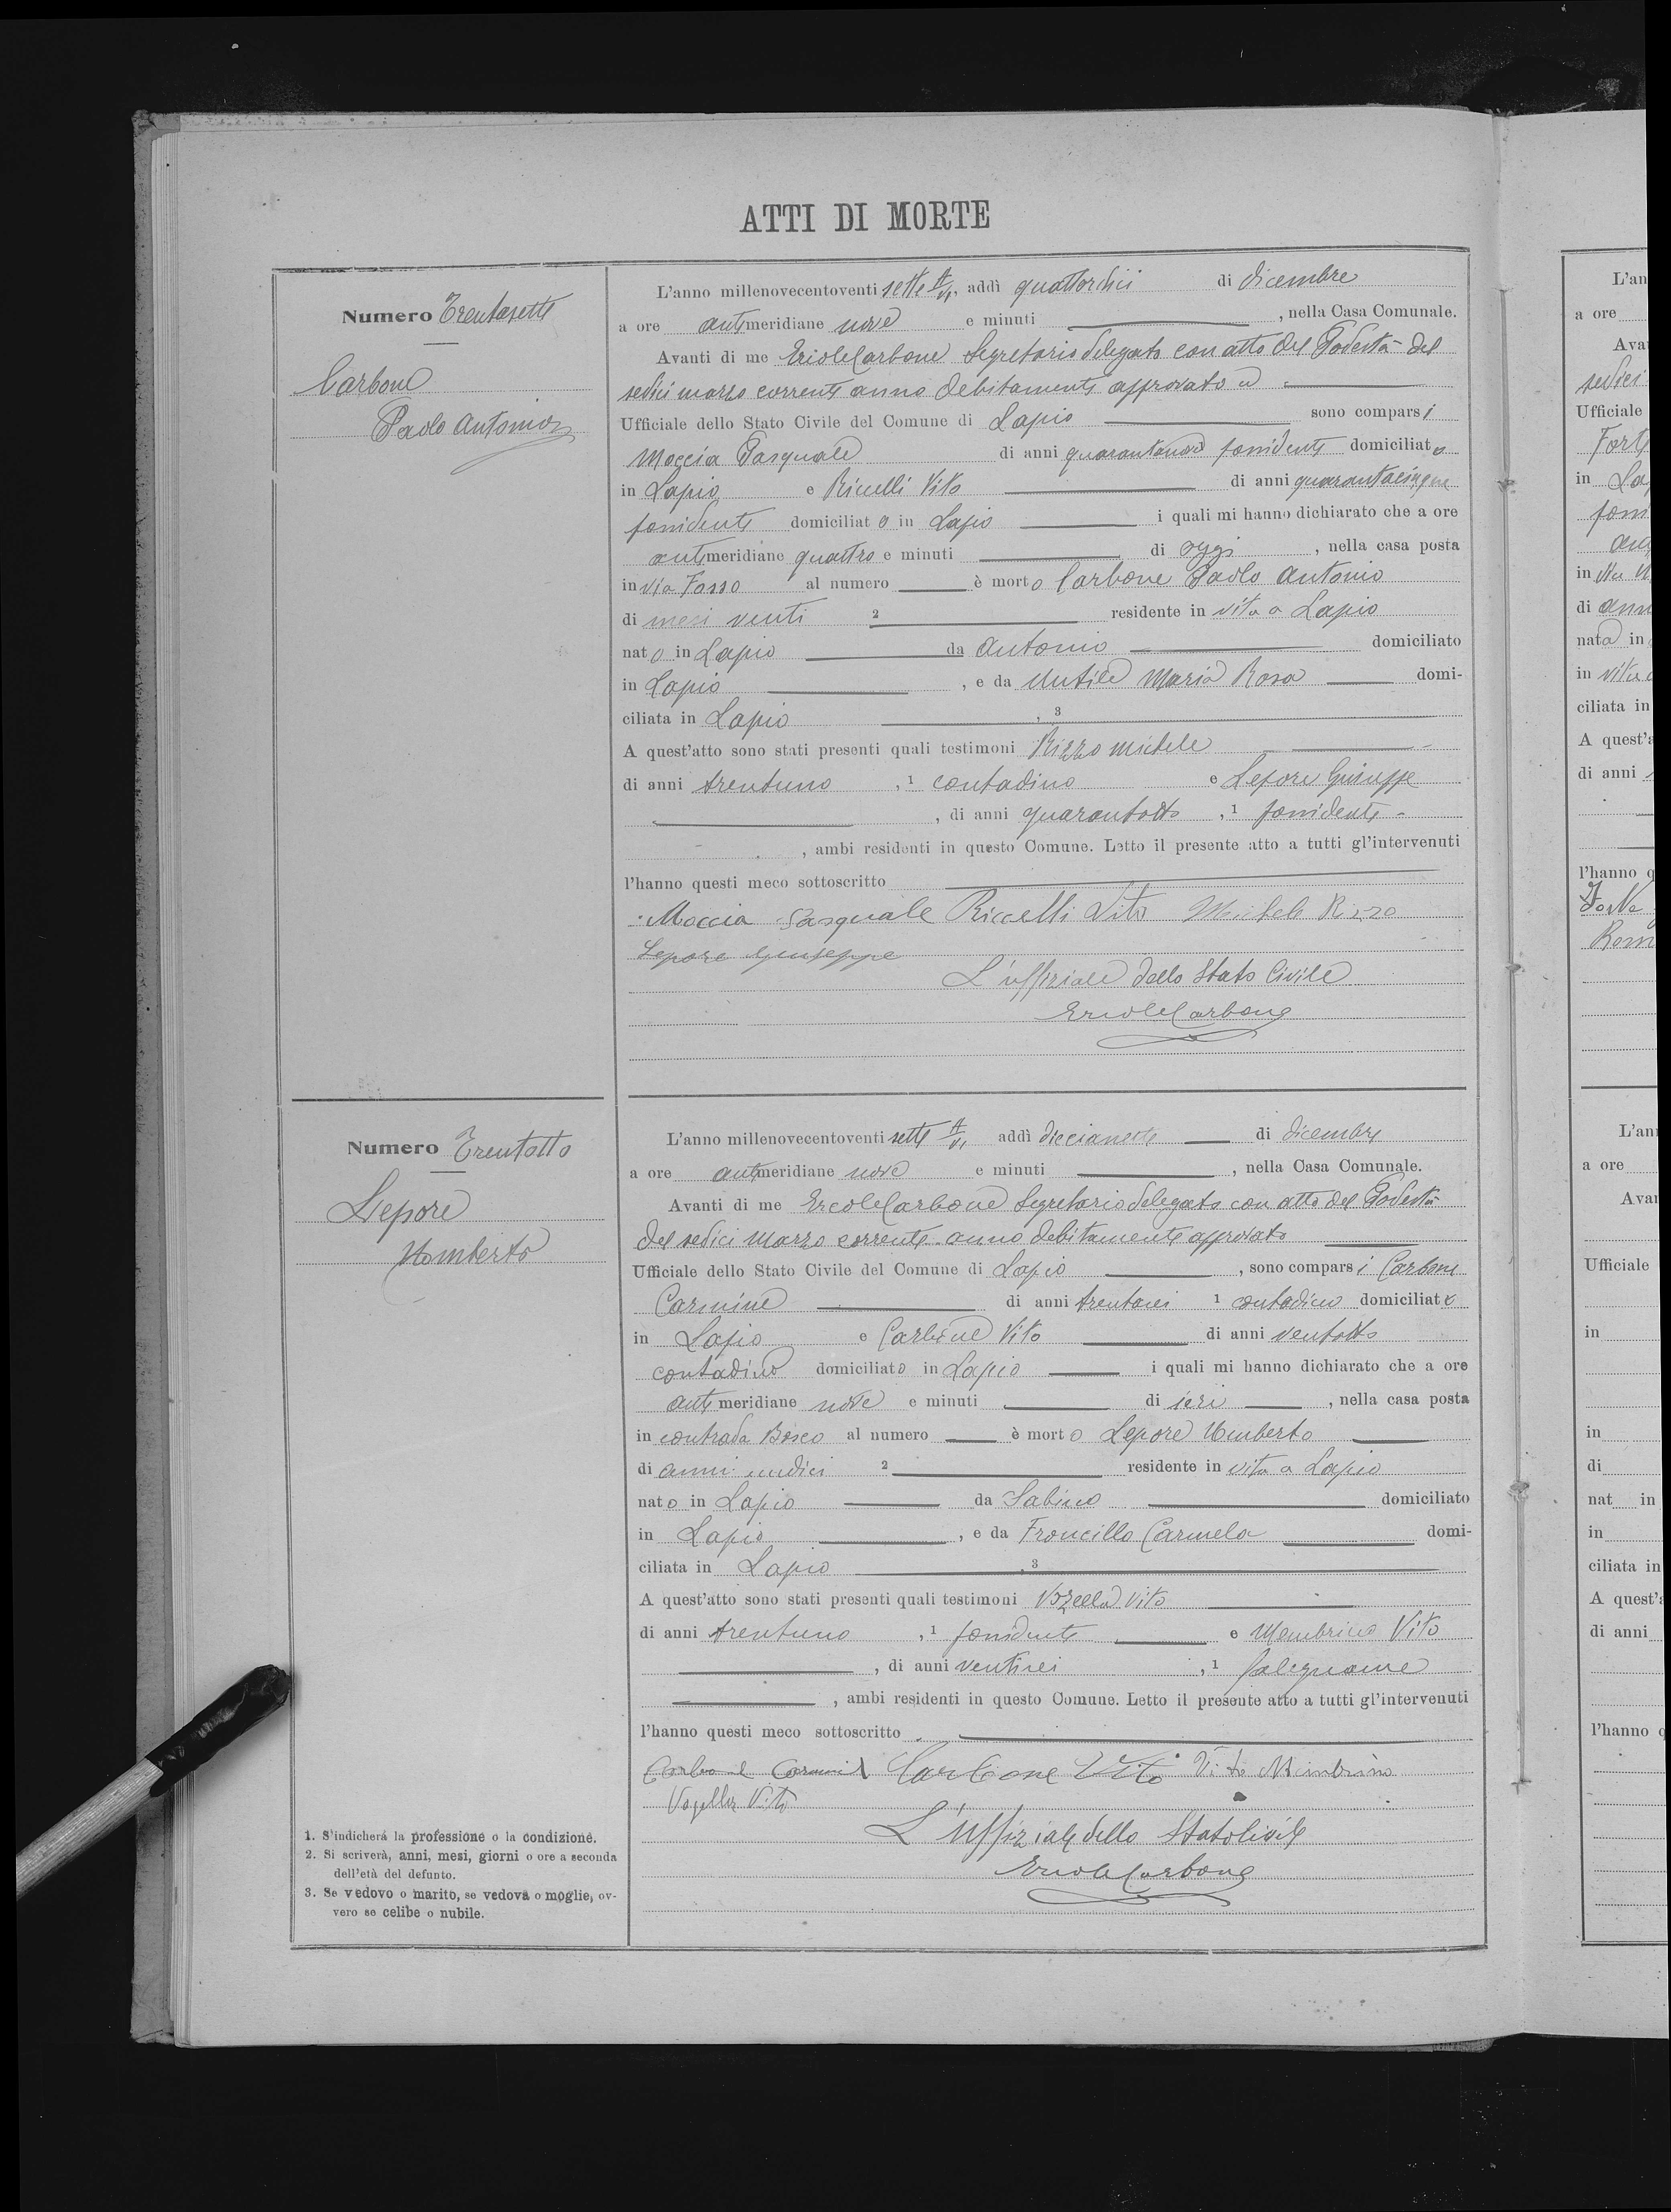 ATTI DI MORTE
Numero Trentasette
Carbone
Paolo Antonio
L'anno millenovecentoventi sette A/VI, addì quattordici di dicembre
a ore antimeridiane nove e minuti , nella Casa Comunale.
Avanti di me Ercole Carbone Segretario delegato con atto del Podestà del
sedici marzo corrente anno debitamente approvato
Ufficiale dello Stato Civile del Comune di Lapio sono comparsi
Moccia Pasquale di anni quarantanove possidente domiciliato
in Lapio e Riccelli Vito di anni quarantacinque
possidente domiciliato in Lapio i quali mi hanno dichiarato che a ore
antimeridiane quattro e minuti di oggi , nella casa posta
in via Fosso al numero è morto Carbone Paolo Antonio
di mesi venti 2 residente in vita a Lapio
nato in Lapio da Antonio domiciliato
in Lapio , e da Maria Rosa domi-
ciliata in Lapio , 3
A quest'atto sono stati presenti quali testimoni Rizzo Michele
di anni trentuno , 1 contadino e Lepore Giuseppe
, di anni quarantotto , 1 possidente
, ambi residenti in questo Comune. Letto il presente atto a tutti gl'intervenuti
l'hanno questi meco sottoscritto
Moccia Pasquale Riccelli Vito Michele Rizzo
Lepore Giuseppe
L'uffiziale dello Stato Civile
Ercole Carbone
Numero Trentotto
Lepore
Umberto
L'anno millenovecentoventi sette A/VI addì diciassette di dicembre
a ore antimeridiane nove e minuti , nella Casa Comunale.
Avanti di me Ercole Carbone Segretario delegato con atto del Podestà
del sedici marzo corrente anno debitamente approvato
Ufficiale dello Stato Civile del Comune di Lapio , sono comparsi Carbone
Carmine di anni trentasei 1 contadino domiciliato
in Lapio e Carbone Vito di anni ventotto
contadino domiciliato in Lapio i quali mi hanno dichiarato che a ore
antimeridiane nove e minuti di ieri , nella casa posta
in contrada Bosco al numero è morto Lepore Umberto
di anni undici 2 residente in vita a Lapio
nato in Lapio da Sabino domiciliato
in Lapio , e da Froncillo Carmela domi-
ciliata in Lapio , 3
A quest'atto sono stati presenti quali testimoni Vozella Vito
di anni trentuno , 1 possidente e Membrino Vito
, di anni ventisei , 1 falegname
, ambi residenti in questo Comune. Letto il presente atto a tutti gl'intervenuti
l'hanno questi meco sottoscritto
Carbone Carmine Carbone Vito Vito Membrino
Vozella Vito
L'Uffiziale dello Stato Civile
Ercole Carbone
1. S'indicherà la professione o la condizione.
2. Si scriverà, anni, mesi, giorni o ore a seconda
dell'età del defunto.
3. Se vedovo o marito, se vedova o moglie, ov-
vero se celibe o nubile.
L'an
a ore
Ava
sedici
Ufficiale
Forte
in La
in
di ann
nata in
in vita
ciliata in
A quest'a
di anni
l'hanno q
Forte
L'an
a ore
Avan
Ufficiale
in
in
di
nat in
in
ciliata in
A quest'a
di anni
l'hanno q